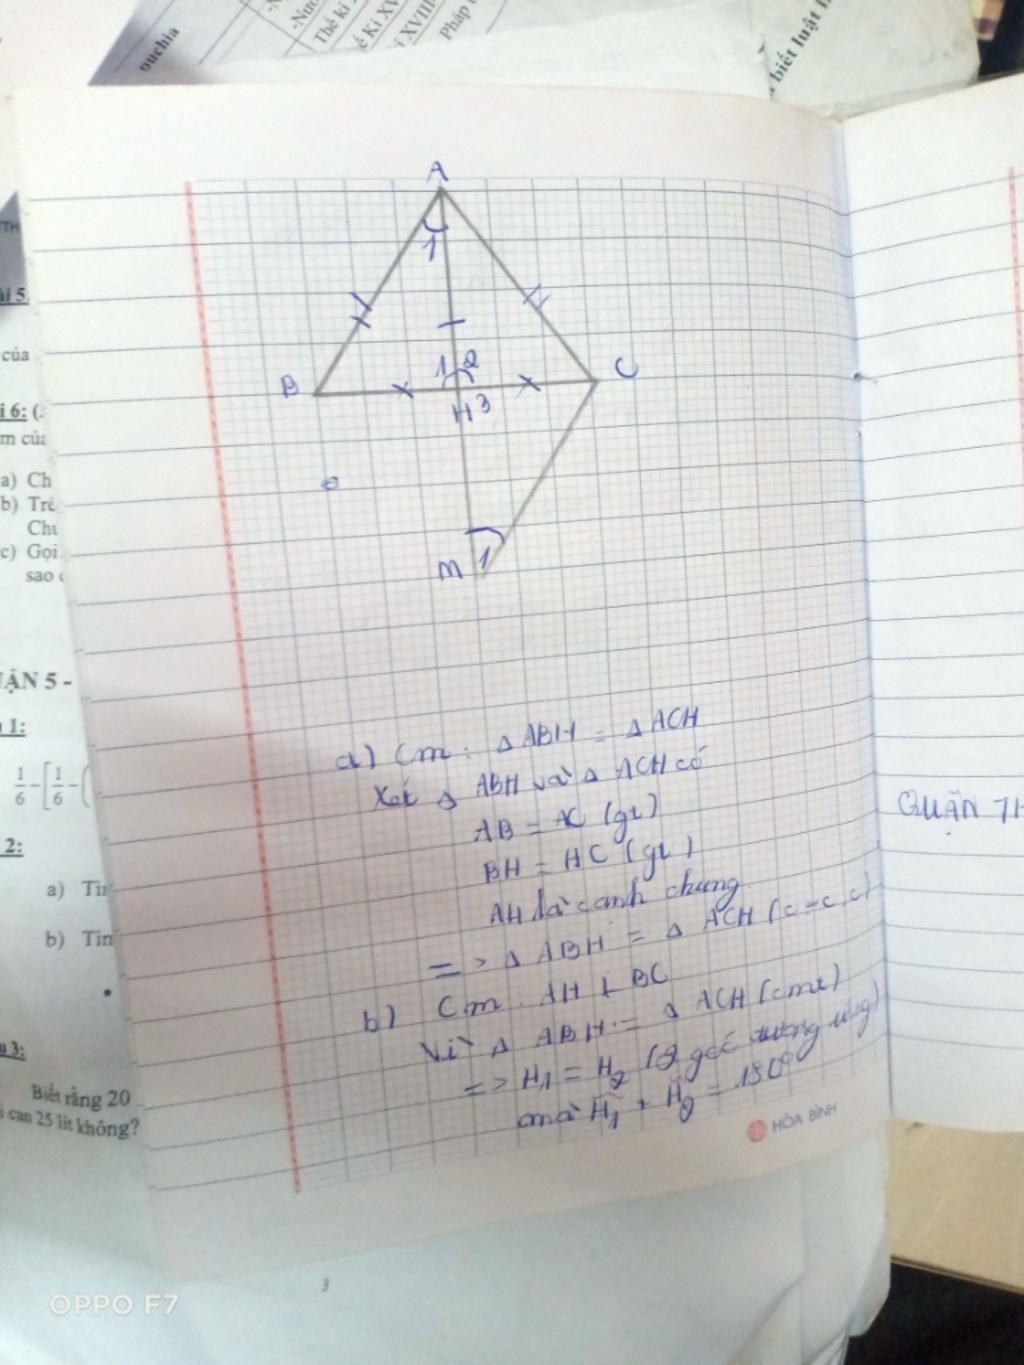 ouchia
Thế kỉ
ế Kỉ XV
ỉ XVIII
Pháp
biết luật
A
1
B
1 2
C
H 3
M 1
ài 5
của
i 6: (
m của
a) Ch
b) Trê
Chu
c) Gọi
sao
UẬN 5 -
1:
1/6 - [1/6 - (
2:
a) Tín
b) Tín
3:
Biết rằng 20
i can 25 lít không?
a) Cm: Δ ABH = Δ ACH
Xét Δ ABH và Δ ACH có
AB = AC (gt)
BH = HC (gt)
AH là cạnh chung
=> Δ ABH = Δ ACH (c-c.c)
b) Cm. AH ⊥ BC
Vì Δ ABH = Δ ACH (cmt)
=> H1 = H2 (2 góc tương ứng)
mà H1 + H2 = 180°
HÒA BÌNH
QUẬN
3
OPPO F7